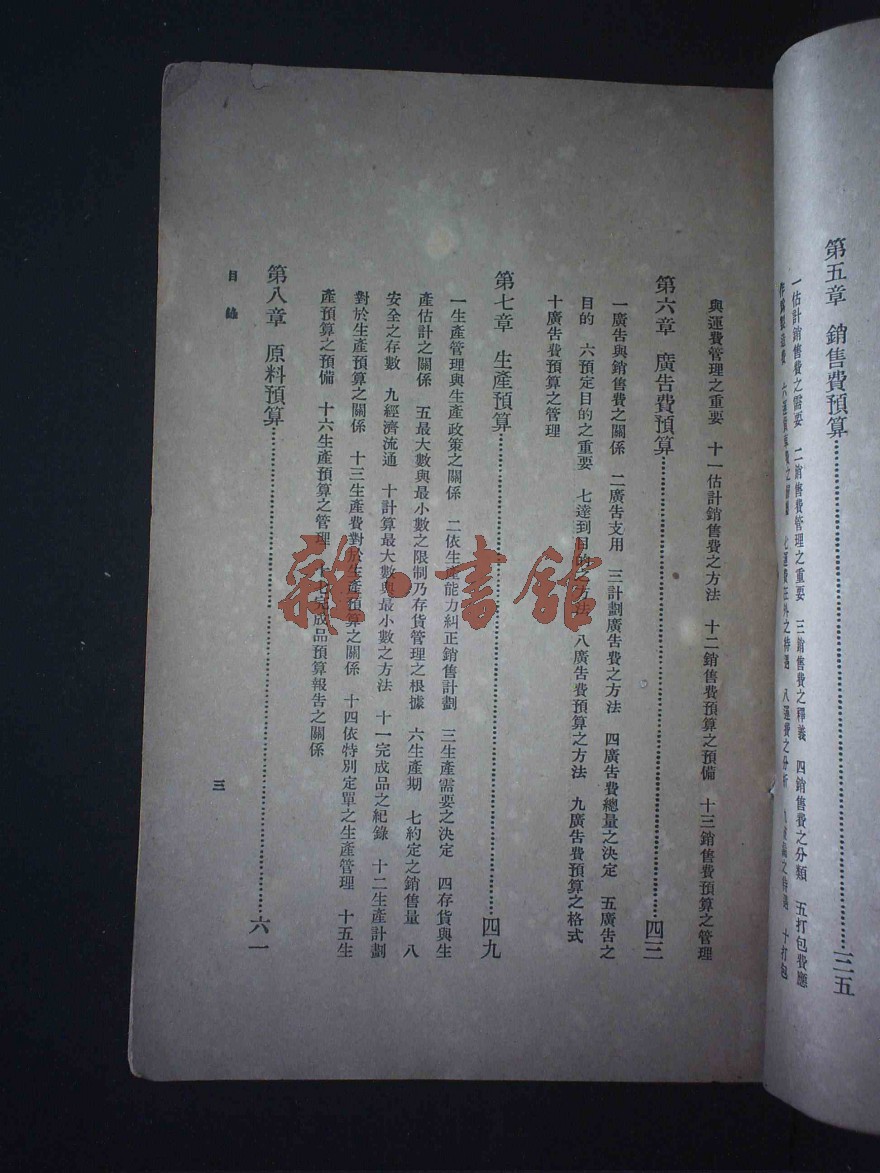 第五章　銷售費預算……三五
一估計銷售費之需要　二銷售費管理之重要　三銷售費之釋義　四銷售費之分類　五打包費應
六運　七運費在外之待遇　八運費之分析　之待遇　十打包
與運費管理之重要　十一估計銷售費之方法　十二銷售費預算之預備　十三銷售費預算之管理
第六章　廣告費預算……四三
一廣告與銷售費之關係　二廣告支用　三計劃廣告費之方法　四廣告費總量之決定　五廣告之
目的　六預定目的之重要　七達到目的之方法　八廣告費預算之方法　九廣告費預算之格式
十廣告費預算之管理
第七章　生產預算……四九
一生產管理與生產政策之關係　二依生產能力糾正銷售計劃　三生產需要之決定　四存貨與生
產估計之關係　五最大數與最小數之限制乃存貨管理之根據　六生產期　七約定之銷售量　八
安全之存數　九經濟流通　十計算最大數與最小數之方法　十一完成品之紀錄　十二生產計劃
對於生產預算之關係　十三生產費對於生產預算之關係　十四依特別定單之生產管理　十五生
產預算之預備　十六生產預算之管理　完成品預算報告之關係
第八章　原料預算……六一
目錄
三
雜·書館